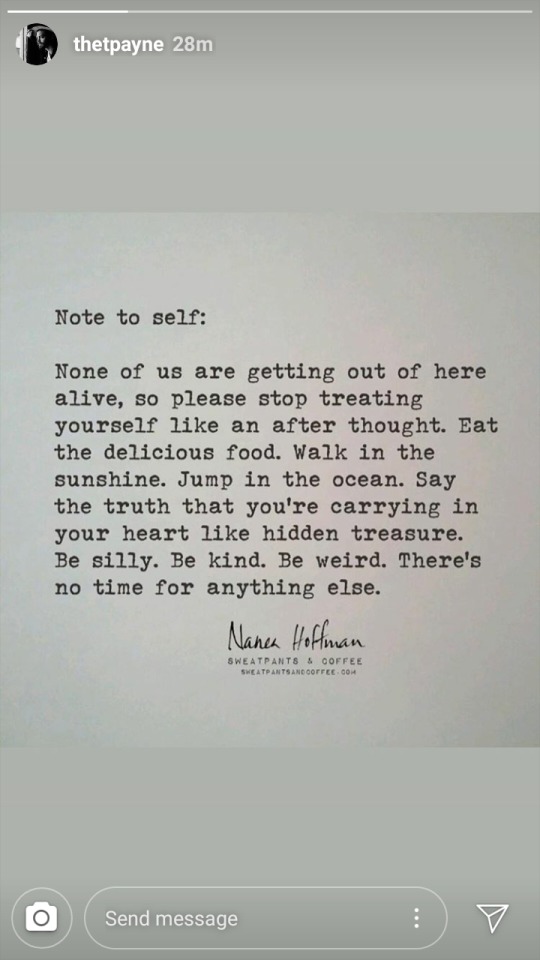 thetpayne 28m
Note to self:
None of us are getting out of here
alive, so please stop treating
yourself like an after thought. Eat
the delicious food. Walk in the
sunshine. Jump in the ocean. Say
the truth that you're carrying in
your heart like hidden treasure.
Be silly. Be kind. Be weird. There's
no time for anything else.
Nanea Hoffman
SWEATPANTS & COFFEE
SWEATPANTSANDCOFFEE.COM
Send message